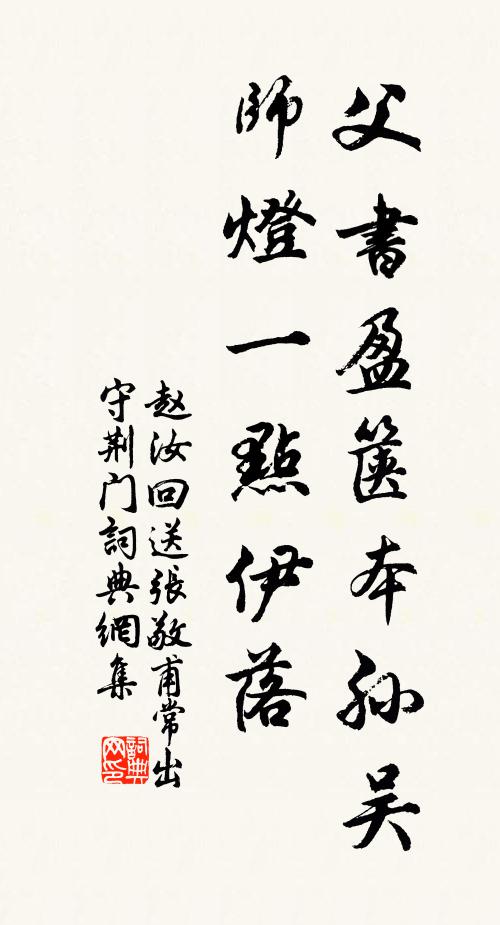 父書盈篋本孙吴
師燈一點伊落
赵汝回送張敬甫常出
守荆门詞典網集
詞典
网印